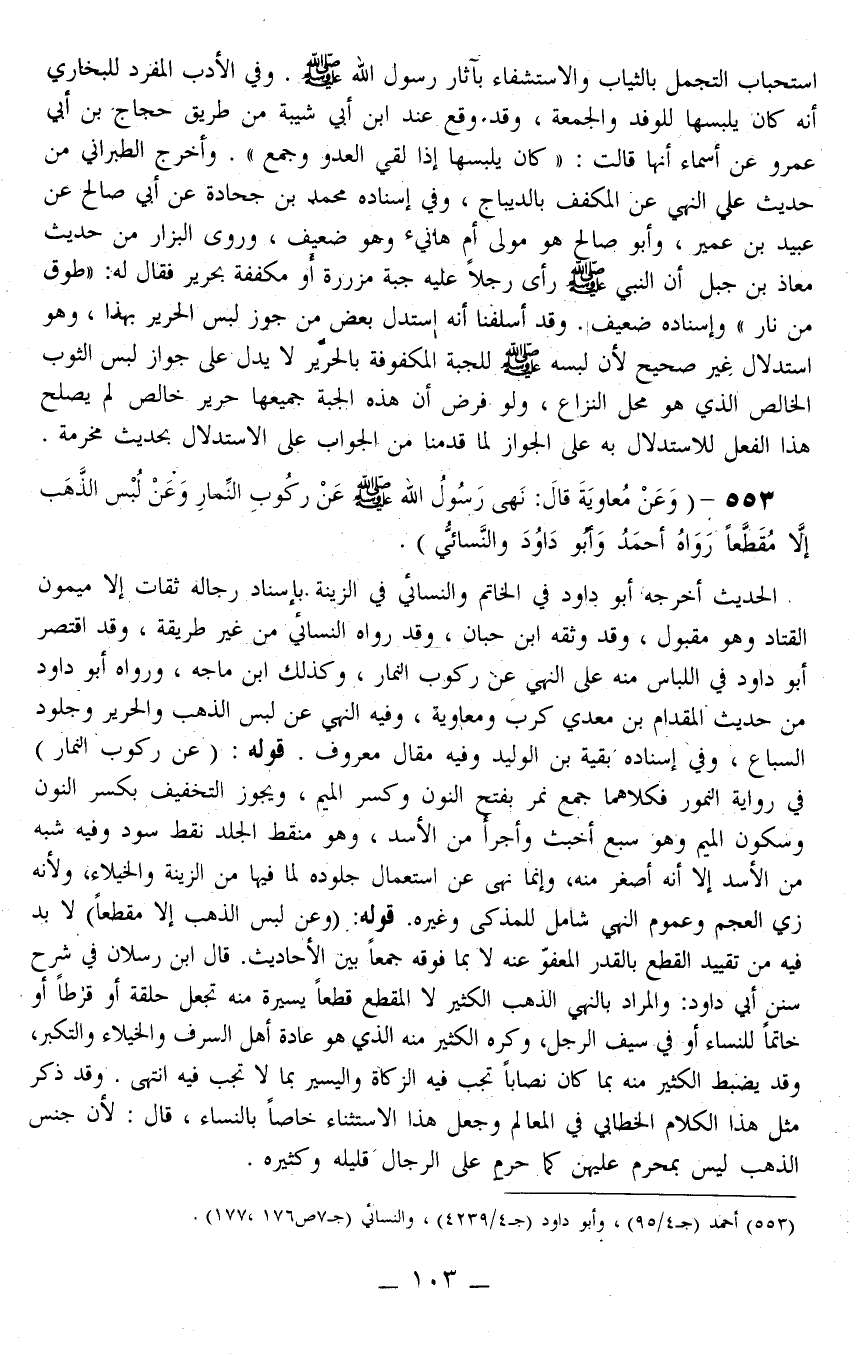 استحباب التجمل بالثياب والاستشفاء بآثار رسول الله ﷺ . وفي الأدب المفرد للبخاري
أنه كان يلبسها للوفد والجمعة ، وقد وقع عند ابن أبي شيبة من طريق حجاج بن أبي
عمرو عن أسماء أنها قالت : « كان يلبسها إذا لقي العدو وجمع » . وأخرج الطبراني من
حديث علي النهي عن المكفف بالديباج ، وفي إسناده محمد بن جحادة عن أبي صالح عن
عبيد بن عمير ، وأبو صالح هو مولى أم هانيء وهو ضعيف ، وروى البزار من حديث
معاذ بن جبل أن النبي ﷺ رأى رجلاً عليه جبة مزررة أو مكففة بحرير فقال له: «طوق
من نار » وإسناده ضعيف . وقد أسلفنا أنه إستدل بعض من جوز لبس الحرير بهذا ، وهو
استدلال غير صحيح لأن لبسه ﷺ للجبة المكفوفة بالحرير لا يدل على جواز لبس الثوب
الخالص الذي هو محل النزاع ، ولو فرض أن هذه الجبة جميعها حرير خالص لم يصلح
هذا الفعل للاستدلال به على الجواز لما قدمنا من الجواب على الاستدلال بحديث مخرمة .
٥٥٣ – ( وَعَنْ مُعاوِيَةَ قالَ: نَهى رَسُولُ الله ﷺ عَنْ ركُوبِ النِّمارِ وَعَنْ لُبْسِ الذَّهَب
إلَّا مُقَطَّعاً رَوَاهُ أحمَدُ وَأَبُو دَاوُدَ والنَّسائيُّ ) .
الحديث أخرجه أبو داود في الخاتم والنسائي في الزينة بإسناد رجاله ثقات إلا ميمون
القتاد وهو مقبول ، وقد وثقه ابن حبان ، وقد رواه النسائي من غير طريقة ، وقد اقتصر
أبو داود في اللباس منه على النهي عن ركوب النمار ، وكذلك ابن ماجه ، ورواه أبو داود
من حديث المقدام بن معدي كرب ومعاوية ، وفيه النهي عن لبس الذهب والحرير وجلود
السباع ، وفي إسناده بقية بن الوليد وفيه مقال معروف . قوله : ( عن ركوب النمار )
في رواية النمور فكلاهما جمع نمر بفتح النون وكسر الميم ، ويجوز التخفيف بكسر النون
وسكون الميم وهو سبع أخبث وأجرأ من الأسد ، وهو منقط الجلد نقط سود وفيه شبه
من الأسد إلا أنه أصغر منه، وإنما نهى عن استعمال جلوده لما فيها من الزينة والخيلاء، ولأنه
زي العجم وعموم النهي شامل للمذكى وغيره. قوله: (وعن لبس الذهب إلا مقطعاً) لا بد
فيه من تقييد القطع بالقدر المعفوّ عنه لا بما فوقه جمعاً بين الأحاديث. قال ابن رسلان في شرح
سنن أبي داود: والمراد بالنهي الذهب الكثير لا المقطع قطعاً يسيرة منه تجعل حلقة أو قرْطاً أو
خاتماً للنساء أو في سيف الرجل، وكره الكثير منه الذي هو عادة أهل السرف والخيلاء والتكبر،
وقد يضبط الكثير منه بما كان نصاباً تجب فيه الزكاة واليسير بما لا تجب فيه انتهى . وقد ذكر
مثل هذا الكلام الخطابي في المعالم وجعل هذا الاستثناء خاصاً بالنساء ، قال : لأن جنس
الذهب ليس بمحرم عليهن كما حرم على الرجال قليله وكثيره .
(٥٥٣) أحمد (جـ٤/٩٥) ، وأبو داود (جـ٤/٤٢٣٩) ، والنسائي (جـ٧ص١٧٦ ،١٧٧) .
– ١٠٣ –